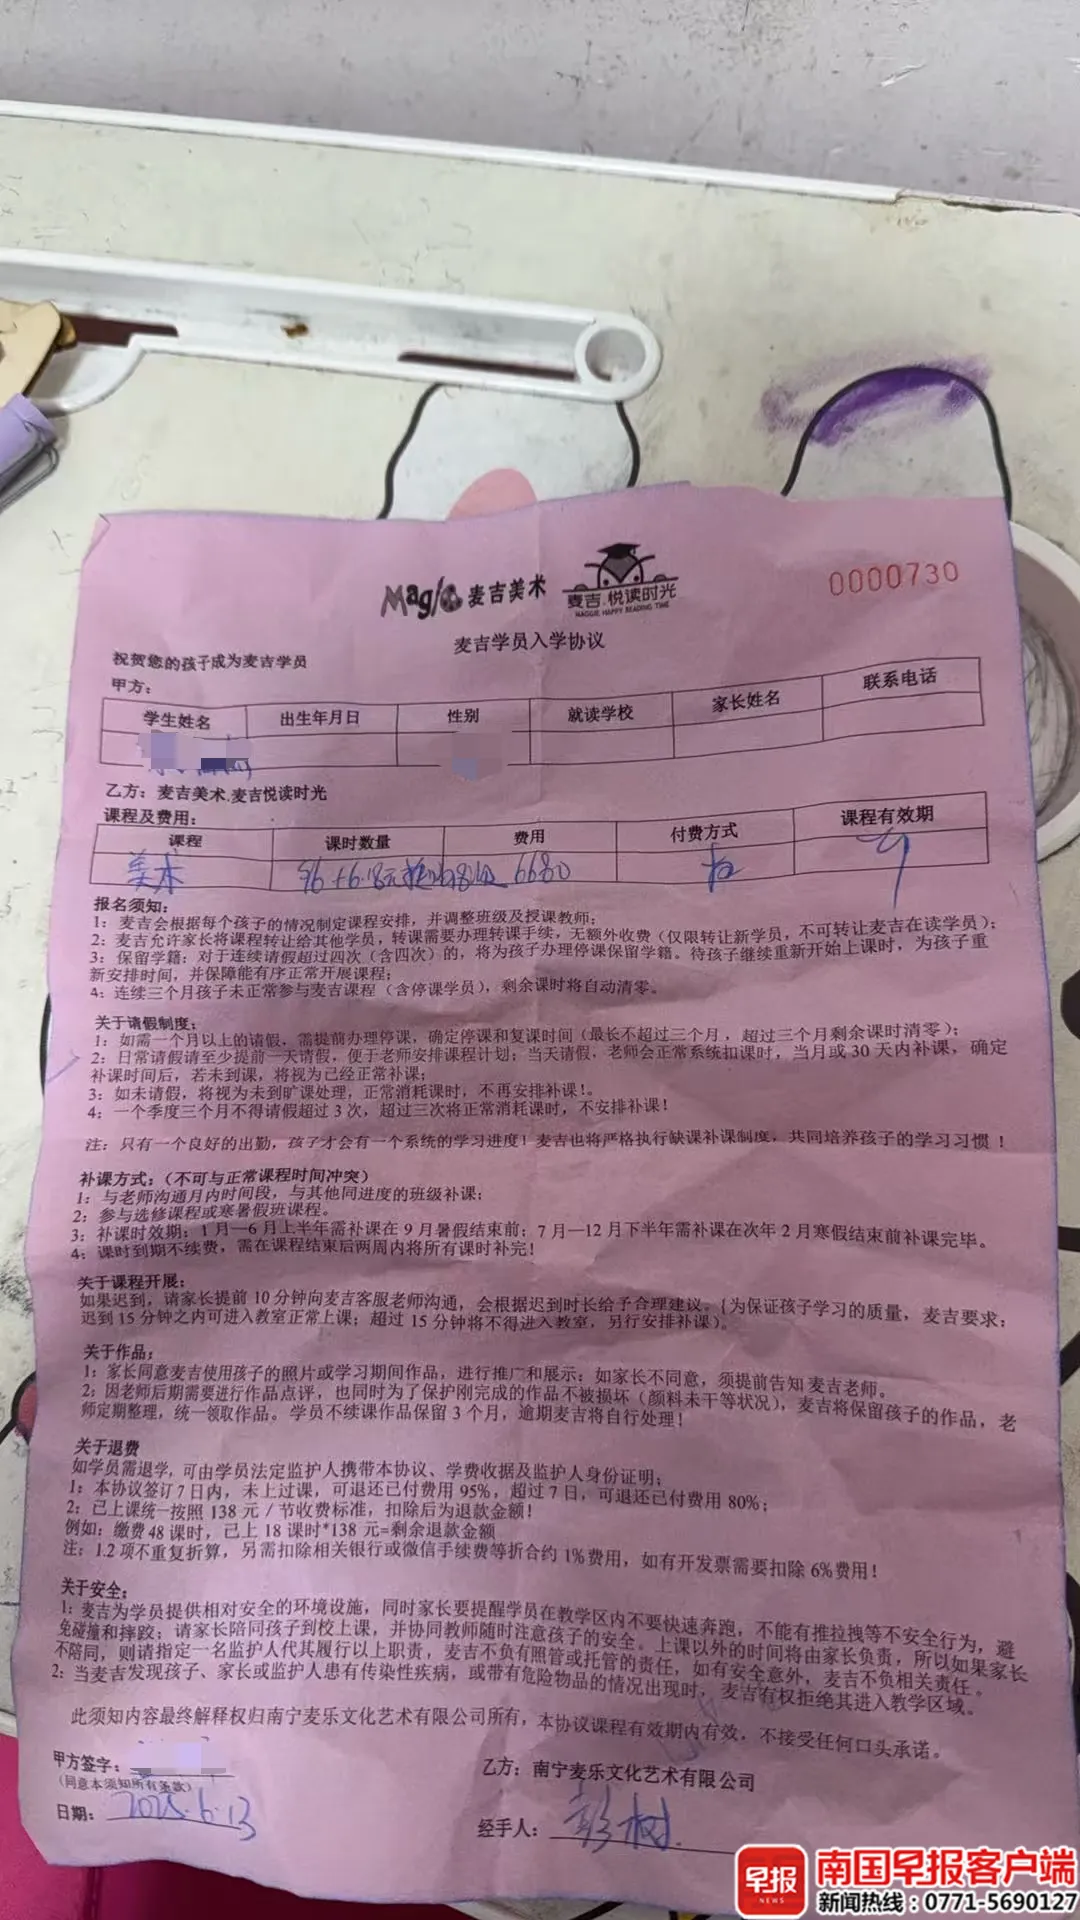 Magic 麦吉美术
麦吉.悦读时光
MAGGIE HAPPY READING TIME
0000730
麦吉学员入学协议
祝贺您的孩子成为麦吉学员
甲方：
学生姓名 出生年月日 性别 就读学校 家长姓名 联系电话
乙方：麦吉美术.麦吉悦读时光
课程及费用：
课程 课时数量 费用 付费方式 课程有效期
美术 96+6 6680
报名须知：
1：麦吉会根据每个孩子的情况制定课程安排，并调整班级及授课教师；
2：麦吉允许家长将课程转让给其他学员，转课需要办理转课手续，无额外收费（仅限转让新学员，不可转让麦吉在读学员）；
3：保留学籍：对于连续请假超过四次（含四次）的，将为孩子办理停课保留学籍。待孩子继续重新开始上课时，为孩子重
新安排时间，并保障能有序正常开展课程；
4：连续三个月孩子未正常参与麦吉课程（含停课学员），剩余课时将自动清零。
关于请假制度：
1：如需一个月以上的请假，需提前办理停课，确定停课和复课时间（最长不超过三个月，超过三个月剩余课时清零）；
2：日常请假请至少提前一天请假，便于老师安排课程计划；当天请假，老师会正常系统扣课时，当月或30天内补课，确定
补课时间后，若未到课，将视为已经正常补课；
3：如未请假，将视为未到旷课处理，正常消耗课时，不再安排补课！。
4：一个季度三个月不得请假超过3次，超过三次将正常消耗课时，不安排补课！
注：只有一个良好的出勤，孩子才会有一个系统的学习进度！麦吉也将严格执行缺课补课制度，共同培养孩子的学习习惯！
补课方式：（不可与正常课程时间冲突）
1：与老师沟通月内时间段，与其他同进度的班级补课；
2：参与选修课程或寒暑假班课程。
3：补课时效期：1月—6月上半年需补课在9月暑假结束前；7月—12月下半年需补课在次年2月寒假结束前补课完毕。
4：课时到期不续费，需在课程结束后两周内将所有课时补完！
关于课程开展：
如果迟到，请家长提前10分钟向麦吉客服老师沟通，会根据迟到时长给予合理建议。{为保证孩子学习的质量，麦吉要求：
迟到15分钟之内可进入教室正常上课；超过15分钟将不得进入教室，另行安排补课）。
关于作品：
1：家长同意麦吉使用孩子的照片或学习期间作品，进行推广和展示；如家长不同意，须提前告知麦吉老师。
2：因老师后期需要进行作品点评，也同时为了保护刚完成的作品不被损坏（颜料未干等状况），麦吉将保留孩子的作品，老
师定期整理，统一领取作品。学员不续课作品保留3个月，逾期麦吉将自行处理！
关于退费
如学员需退学，可由学员法定监护人携带本协议、学费收据及监护人身份证明；
1：本协议签订7日内，未上过课，可退还已付费用95%，超过7日，可退还已付费用80%；
2：已上课统一按照138元/节收费标准，扣除后为退款金额！
例如：缴费48课时，已上18课时*138元=剩余退款金额
注：1.2项不重复折算，另需扣除相关银行或微信手续费等折合约1%费用，如有开发票需要扣除6%费用！
关于安全：
1：麦吉为学员提供相对安全的环境设施，同时家长要提醒学员在教学区内不要快速奔跑，不能有推拉拽等不安全行为，避
免碰撞和摔跤；请家长陪同孩子到校上课，并协同教师随时注意孩子的安全。上课以外的时间将由家长负责，所以如果家长
不陪同，则请指定一名监护人代其履行以上职责，麦吉不负有照管或托管的责任，如有安全意外，麦吉不负相关责任。
2：当麦吉发现孩子、家长或监护人患有传染性疾病，或带有危险物品的情况出现时，麦吉有权拒绝其进入教学区域。
此须知内容最终解释权归南宁麦乐文化艺术有限公司所有，本协议课程有效期内有效，不接受任何口头承诺。
甲方签字：
（同意本须知所有条款）
日期：2025.6.13
乙方：南宁麦乐文化艺术有限公司
经手人：彭树
早报
NEWS
南国早报客户端
新闻热线：0771-5690127